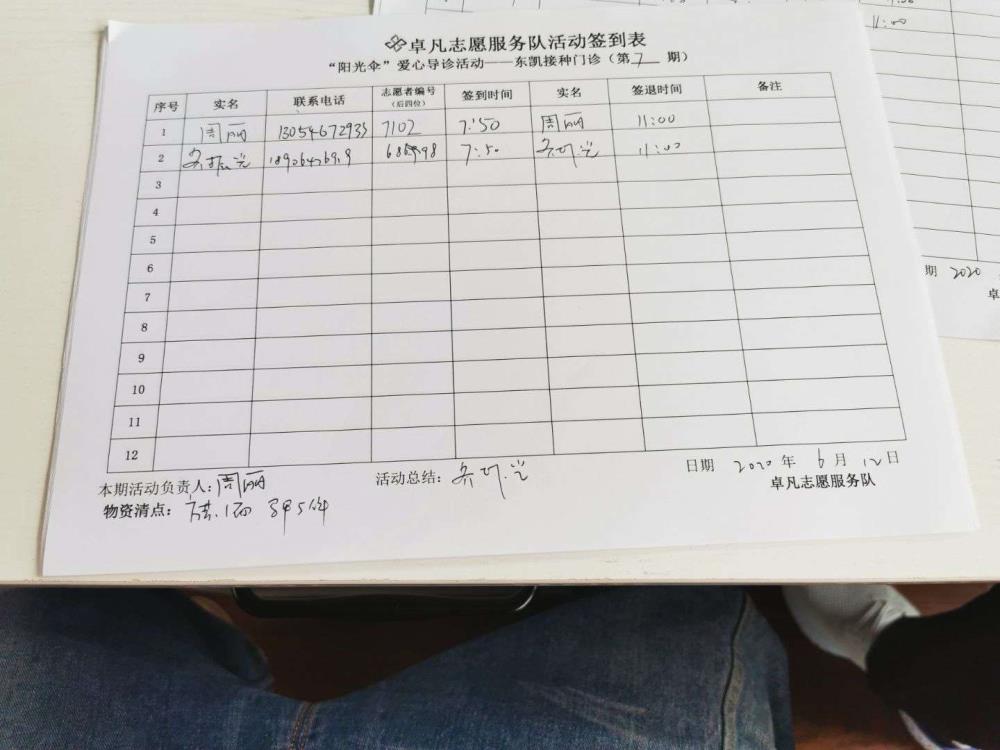 11:00
卓凡志愿服务队活动签到表
“阳光伞”爱心导诊活动——东凯接种门诊（第7期）
序号 实名 联系电话 志愿者编号（后四位） 签到时间 实名 签退时间 备注
1 周丽 13054672935 7102 7:50 周丽 11:00
2 7:50 11:00
3
4
5
6
7
8
9
10
11
12
本期活动负责人：周丽 活动总结： 日期 2020年6月12日
物资清点： 卓凡志愿服务队
期 2020
卓